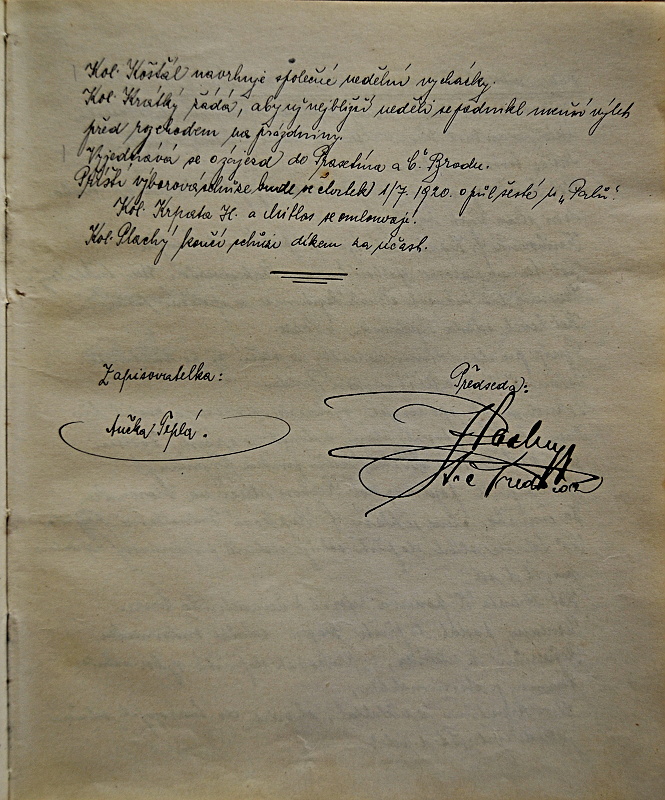 Kol. Košťál navrhuje společné nedělní vycházky.
Kol. Krátký žádá, aby už nejbližší neděli se podnikl menší výlet
před rozchodem na prázdniny.
Vyjednává se o zájezd do Prasetína a Č. Brodu.
Příští výborová schůze bude ve čtvrtek 1/7. 1920. o půl šesté u „Palů“.
Kol. Krpata H. a se omlouvají.
Kol. Plachý končí schůzi díkem za účast.
Zapisovatelka:
Předseda:
Ančka Teplá.
Plachý